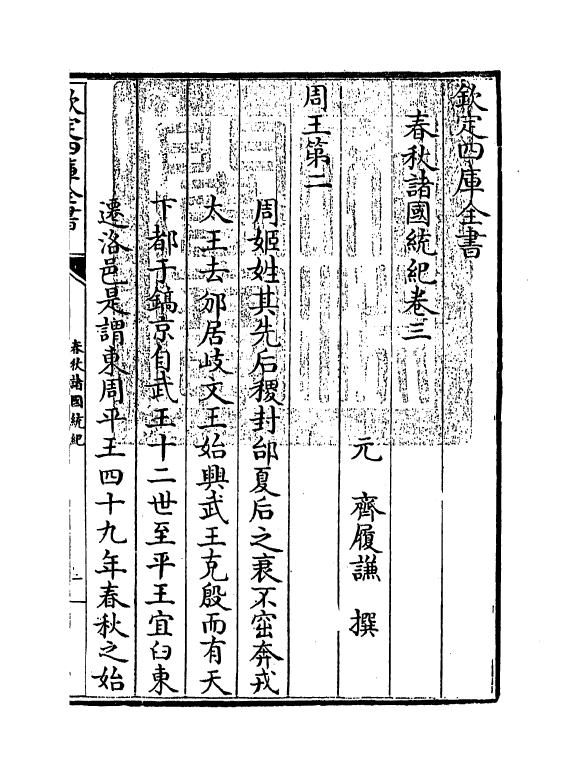 欽定四庫全書
春秋諸國統紀卷三
元 齊履謙 撰
周王第二
周姬姓其先后稷封邰夏后之衰不窋奔戎
太王去邠居岐文王始興武王克殷而有天
下都于鎬京自武王十二世至平王宜臼東
遷洛邑是謂東周平王四十九年春秋之始
欽定四庫全書
春秋諸國統紀
一